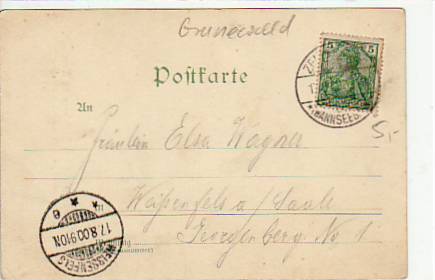 Grunewald
5 5
Postkarte
(WANNSEEB
5,-
An
Fräulein Elsa Wagner
in
Weißenfels a/ Saale
Georgenberg No 1
WEISSENFELS
17.8.00.9-10N